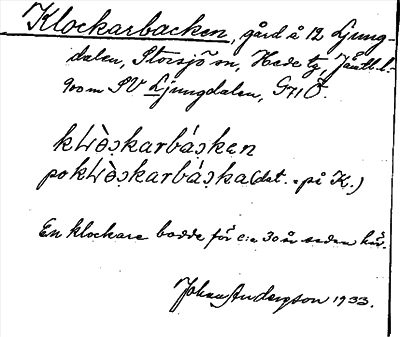 Klockarbacken, gård å 12 Ljung-
dalen, Storsjö sn, Hede tg, Jämtl. l.
900 m SV Ljungdalen, G71Ö.
kɫɷ̀ɔskarbáɔken
po kɫɷ̀ɔskarbáɔka (dat. - på K.)
En klockare bodde för c:a 30 år sedan här.
Johan Anderzson 1933.